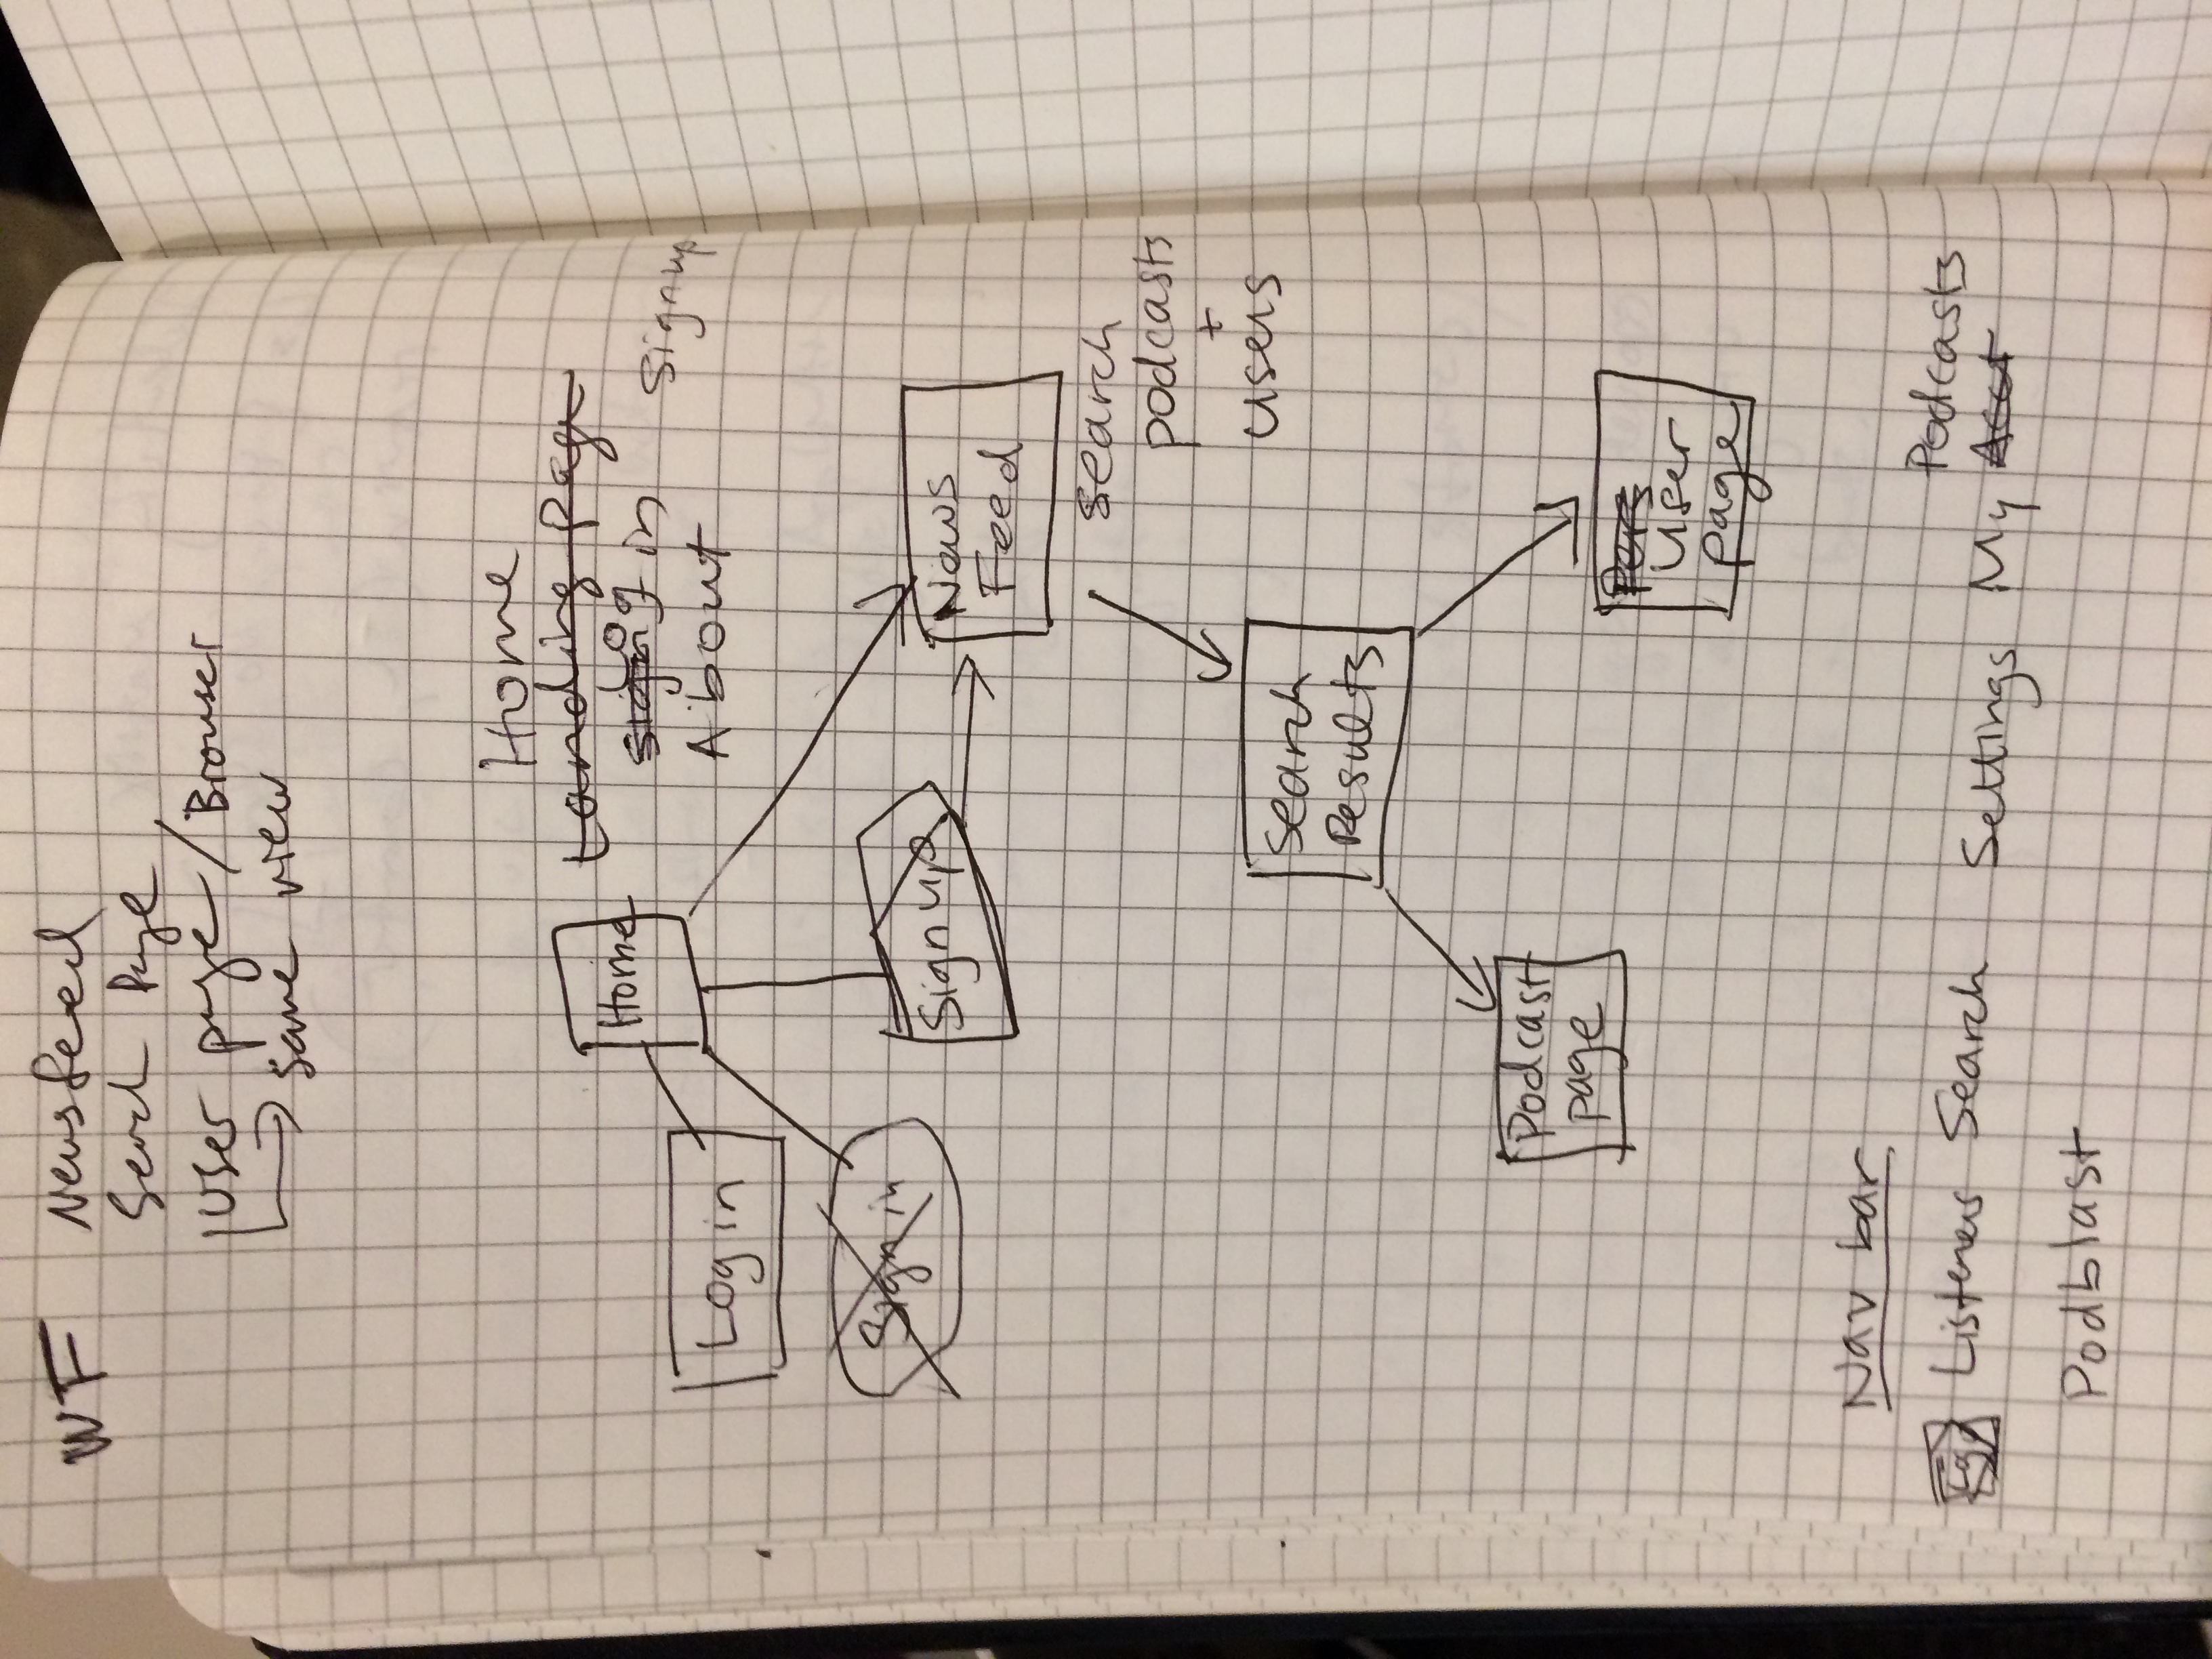 WF Newsfeed
Search Page
User page / Browser
same view
Home
Landing page
Home
Log
Sign in
Signup
Log in
About
Sign in
Sign up
News
Feed
Search
podcasts
+
users
Search
Results
Podcast
page
Pers
User
page
Nav bar
Podcasts
Listeners Search Settings My Acct
Podblast